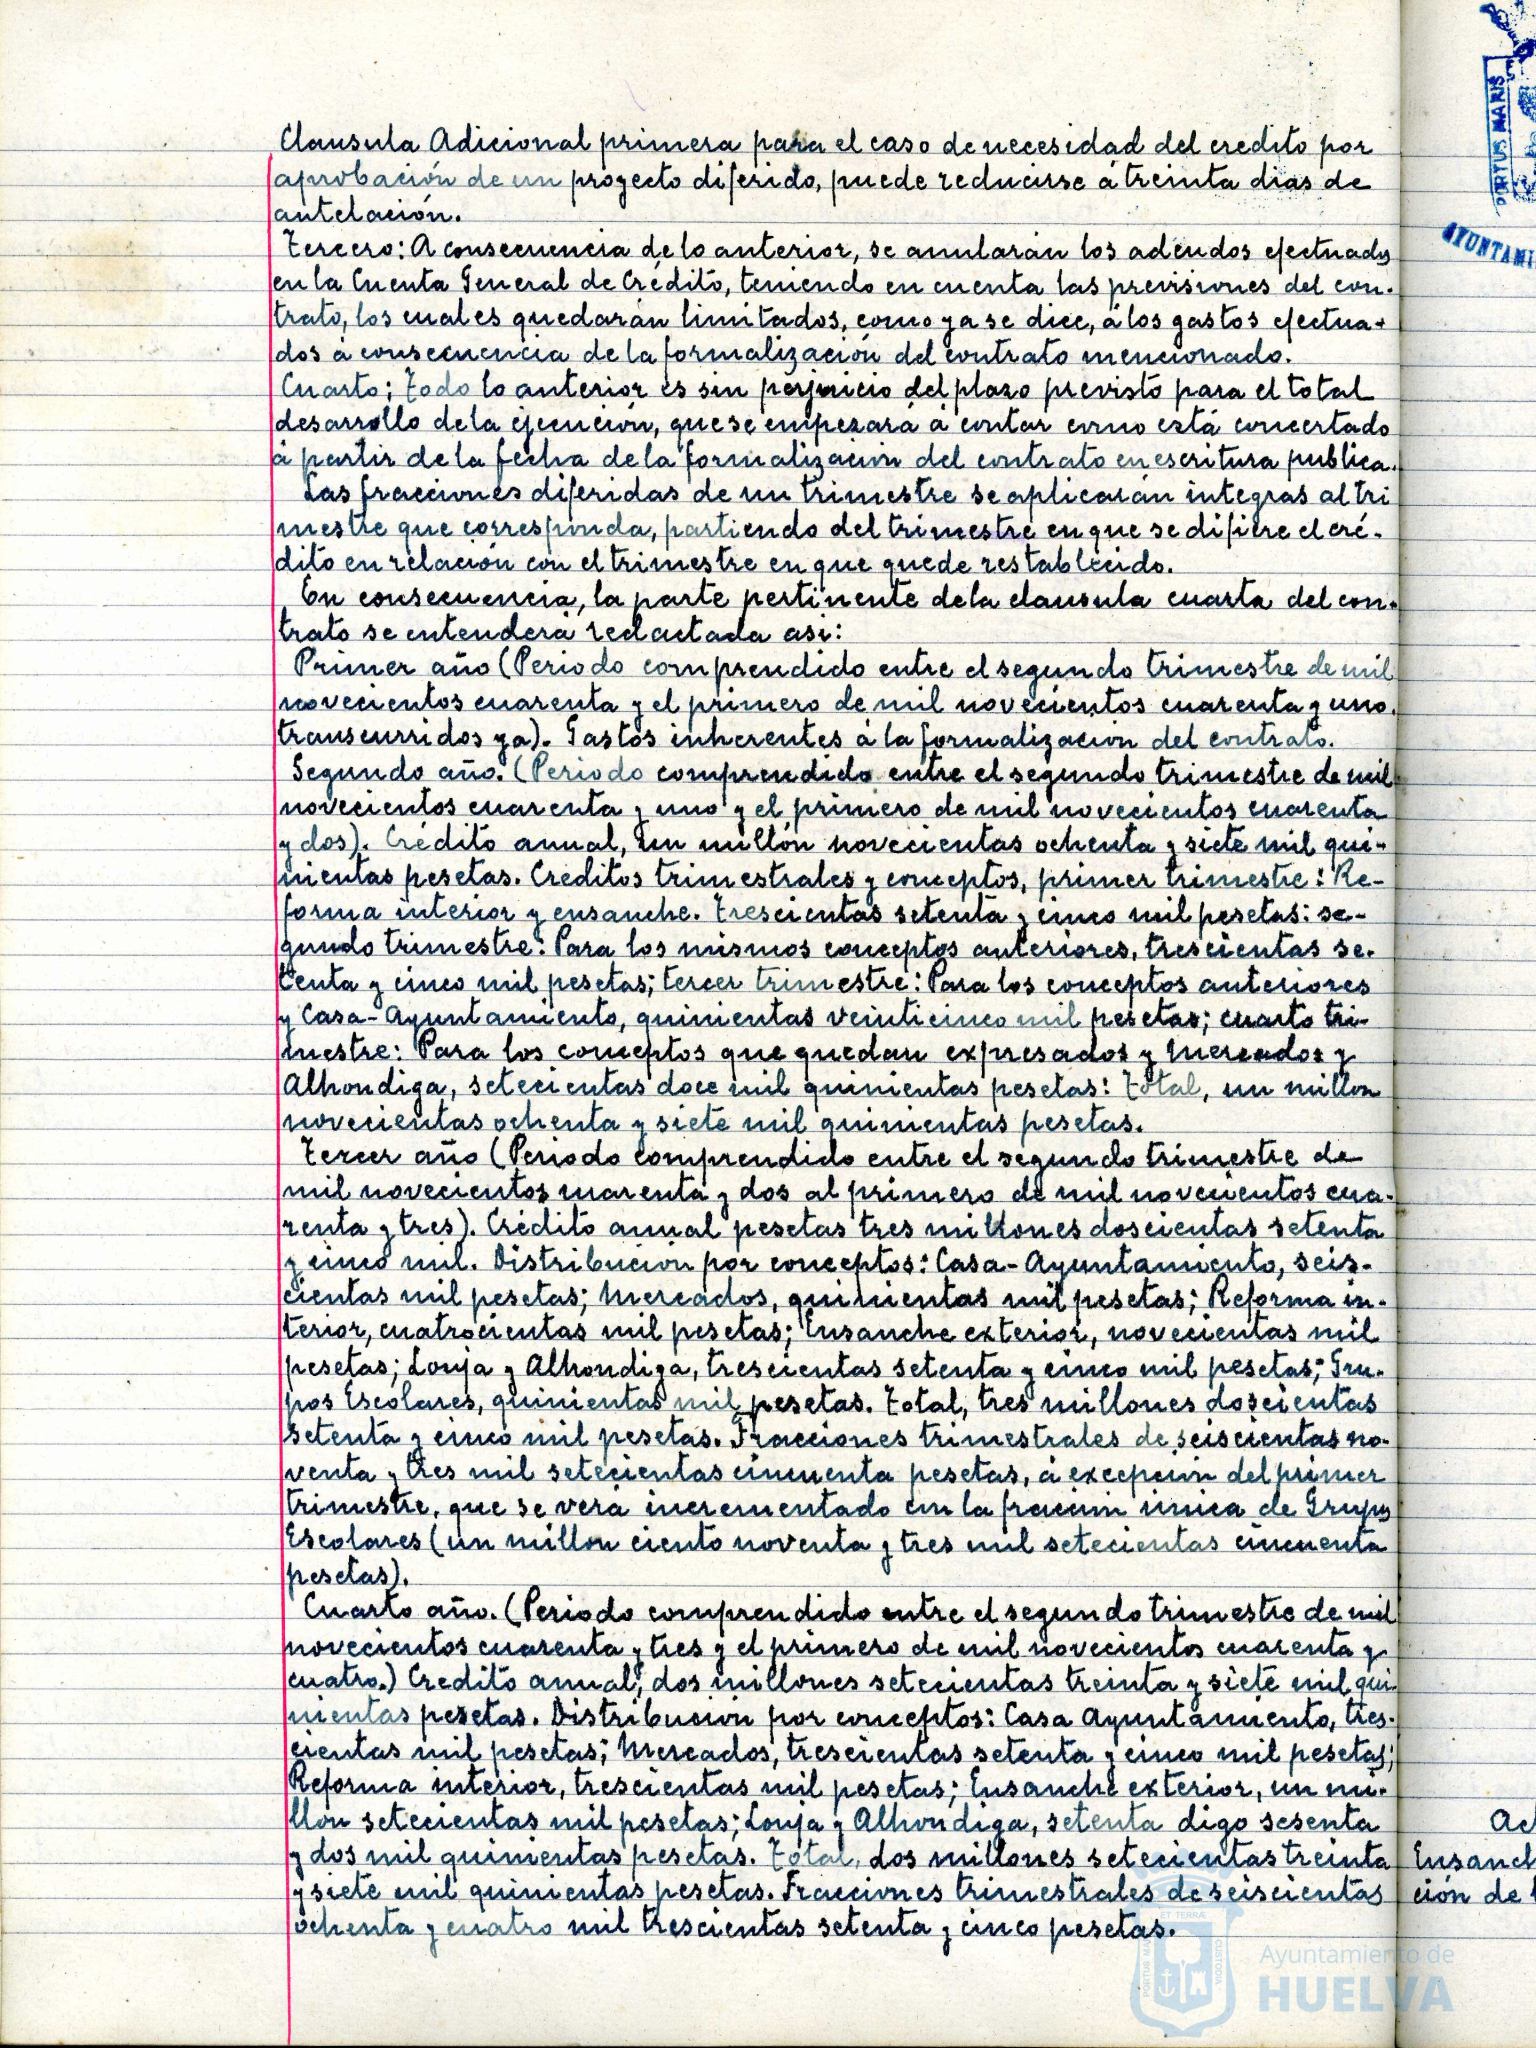 Clausula Adicional primera para el caso de necesidad del credito por
aprobación de un proyecto diferido, puede reducirse á treinta dias de
antelación.
Tercero: A consecuencia de lo anterior, se anularán los adeudos efectuados
en la Cuenta General de Crédito, teniendo en cuenta las previsiones del con-
trato, los cuales quedarán limitados, como ya se dice, á los gastos efectua-
dos á consecuencia de la formalización del contrato mencionado.
Cuarto: Todo lo anterior es sin perjuicio del plazo previsto para el total
desarrollo de la ejecución, que se empezará á contar como está concertado
á partir de la fecha de la formalización del contrato en escritura publica.
Las fracciones diferidas de un trimestre se aplicarán integras al tri
mestre que corresponda, partiendo del trimestre en que se difiere el cré-
dito en relación con el trimestre en que quede restablecido.
En consecuencia, la parte pertinente de la clausula cuarta del con-
trato se entenderá redactada asi:
Primer año (Periodo comprendido entre el segundo trimestre de mil
novecientos cuarenta y el primero de mil novecientos cuarenta y uno,
transcurridos ya). Gastos inherentes á la formalización del contrato.
Segundo año. (Periodo comprendido entre el segundo trimestre de mil
novecientos cuarenta y uno y el primero de mil novecientos cuarenta
y dos). Crédito anual, un millón novecientas ochenta y siete mil qui-
nientas pesetas. Créditos trimestrales y conceptos, primer trimestre: Re-
forma interior y ensanche. Trescientas setenta y cinco mil pesetas: se-
gundo trimestre: Para los mismos conceptos anteriores, trescientas se-
tenta y cinco mil pesetas; tercer trimestre: Para los conceptos anteriores
y Casa-Ayuntamiento, quinientas veinticinco mil pesetas; cuarto tri-
mestre: Para los conceptos que quedan expresados y Mercados y
Alhondiga, setecientas doce mil quinientas pesetas: Total, un millon
novecientas ochenta y siete mil quinientas pesetas.
Tercer año (Periodo comprendido entre el segundo trimestre de
mil novecientos cuarenta y dos al primero de mil novecientos cua-
renta y tres). Crédito anual pesetas tres millones doscientas setenta
y cinco mil. Distribución por conceptos: Casa-Ayuntamiento, seis-
cientas mil pesetas; Mercados, quinientas mil pesetas; Reforma in-
terior, cuatrocientas mil pesetas; Ensanche exterior, novecientas mil
pesetas; Lonja y Alhondiga, trescientas setenta y cinco mil pesetas; Gru-
pos Escolares, quinientas mil pesetas. Total, tres millones doscientas
setenta y cinco mil pesetas. Fracciones trimestrales de seiscientas no-
venta y tres mil setecientas cincuenta pesetas, á excepción del primer
trimestre, que se verá incrementado con la fracción única de Grupos
Escolares (un millon ciento noventa y tres mil setecientas cincuenta
pesetas).
Cuarto año. (Periodo comprendido entre el segundo trimestre de mil
novecientos cuarenta y tres y el primero de mil novecientos cuarenta y
cuatro.) Credito anual, dos millones setecientas treinta y siete mil qui-
nientas pesetas. Distribución por conceptos: Casa Ayuntamiento, tres-
cientas mil pesetas; Mercados, trescientas setenta y cinco mil pesetas;
Reforma interior, trescientas mil pesetas; Ensanche exterior, un mi-
llón setecientas mil pesetas; Lonja y Alhondiga, setenta digo sesenta
y dos mil quinientas pesetas. Total, dos millones setecientas treinta
y siete mil quinientas pesetas. Fracciones trimestrales de seiscientas
ochenta y cuatro mil trescientas setenta y cinco pesetas.
PORTUS MARIS
AYUNTAMI
Ensanch
ción de
ET TERRÆ
PORTUS MARIS
CUSTODIA
Ayuntamiento de
HUELVA